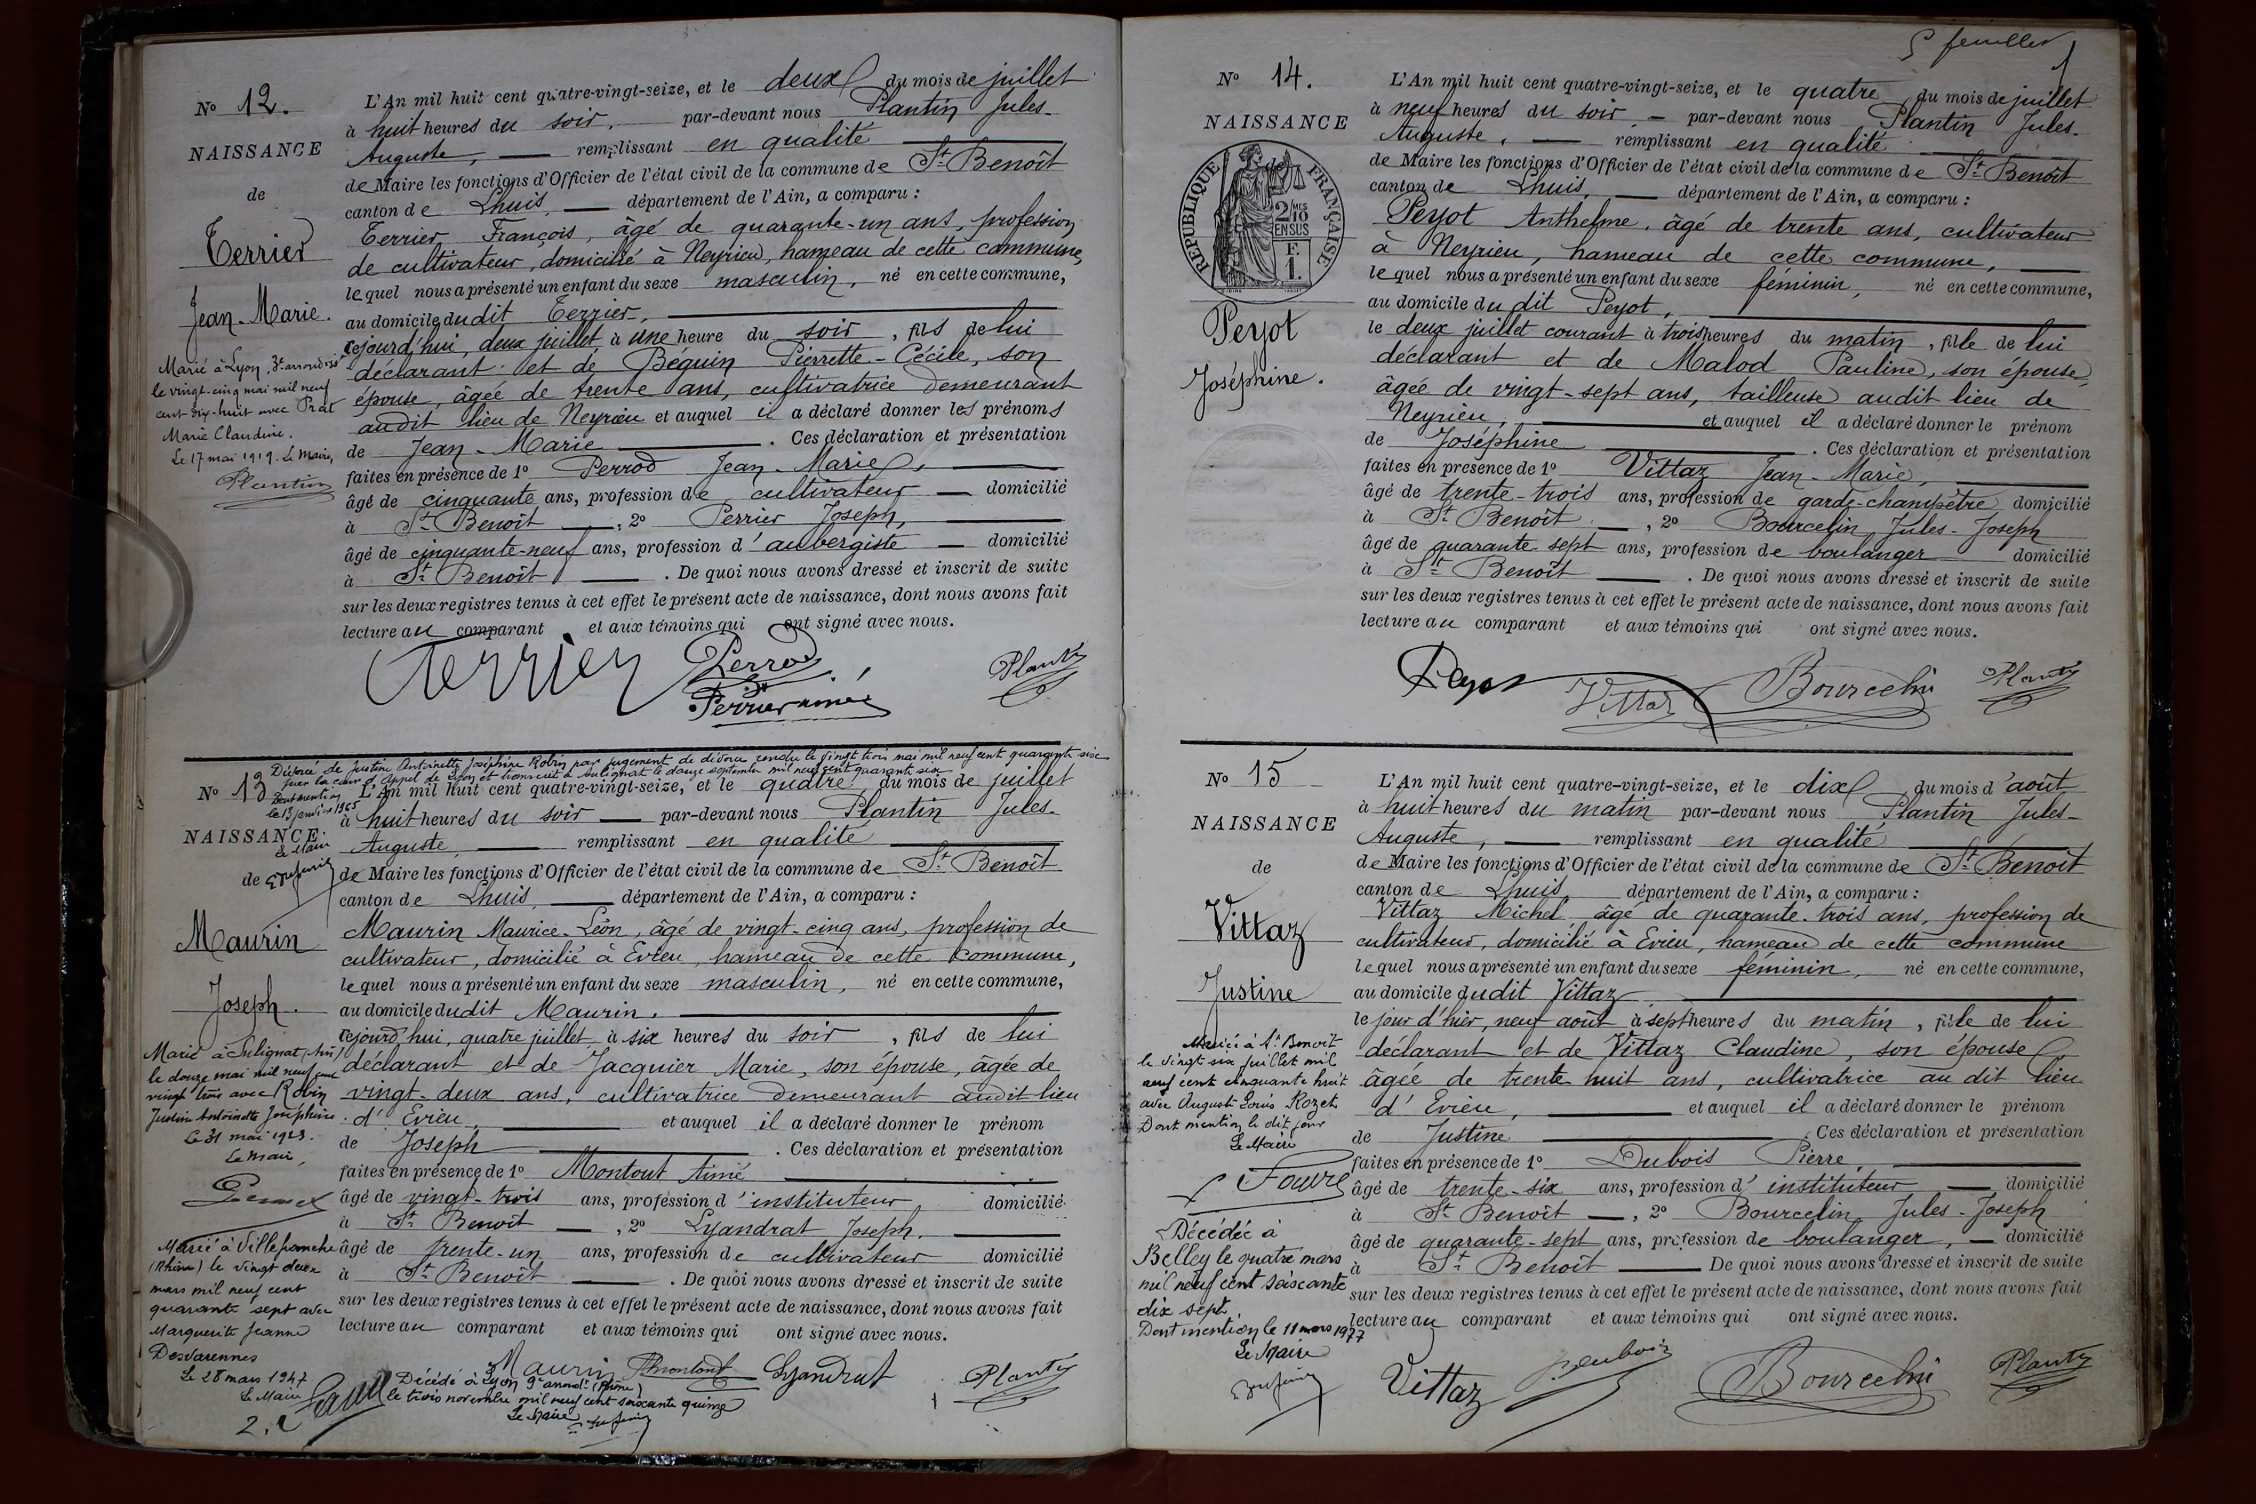 5e feuillet
N° 12.
NAISSANCE
de
Terrier
Jean-Marie.
Marié à Lyon, 3e arrondist
le vingt-cinq mai mil neuf
cent dix-huit avec Prat
Marie Claudine.
Le 17 mai 1919. Le Maire,
Plantin
L'An mil huit cent quatre-vingt-seize, et le deux du mois de juillet
à huit heures du soir, par-devant nous Plantin Jules-
Auguste, remplissant en qualité
de Maire les fonctions d'Officier de l'état civil de la commune de St Benoît
canton de Lhuis, département de l'Ain, a comparu :
Terrier François, âgé de quarante-un ans, profession
de cultivateur, domicilié à Neyrieu, hameau de cette commune,
lequel nous a présenté un enfant du sexe masculin, né en cette commune,
au domicile dudit Terrier,
cejourd'hui, deux juillet à une heure du soir, fils de lui
déclarant et de Béguin Pierrette-Cécile, son
épouse, âgée de trente ans, cultivatrice demeurant
audit lieu de Neyrieu et auquel il a déclaré donner les prénoms
de Jean-Marie. Ces déclaration et présentation
faites en présence de 1° Perrod Jean-Marie,
âgé de cinquante ans, profession de cultivateur domicilié
à St Benoît, 2° Perrier Joseph,
âgé de cinquante-neuf ans, profession d'aubergiste domicilié
à St Benoît. De quoi nous avons dressé et inscrit de suite
sur les deux registres tenus à cet effet le présent acte de naissance, dont nous avons fait
lecture au comparant et aux témoins qui ont signé avec nous.
Terrier Perrod Plantin
Perrier ainé
Divorcé de Justine Antoinette Joséphine Robin par jugement de divorce rendu le vingt trois mai mil neuf cent quarante six
par la cour d'Appel de Lyon et transcrit à Sulignat le douze septembre mil neuf cent quarante six
Dont mention
le 13 janvier 1965
Le Maire
N° 13
NAISSANCE
de
Maurin
Joseph.
Marié à Sulignat (Ain)
le douze mai mil neuf cent
vingt trois avec Robin
Justine Antoinette Joséphine
Le 31 mai 1923.
Le Maire,
Marié à Villefranche
(Rhône) le vingt deux
mars mil neuf cent
quarante sept avec
Marguerite Jeanne
Desvarennes
Le 28 mars 1947
Le Maire
L'An mil huit cent quatre-vingt-seize, et le quatre du mois de juillet
à huit heures du soir par-devant nous Plantin Jules-
Auguste, remplissant en qualité
de Maire les fonctions d'Officier de l'état civil de la commune de St Benoît
canton de Lhuis, département de l'Ain, a comparu :
Maurin Maurice-Léon, âgé de vingt-cinq ans, profession de
cultivateur, domicilié à Evieu, hameau de cette commune,
lequel nous a présenté un enfant du sexe masculin, né en cette commune,
au domicile dudit Maurin.
cejourd'hui, quatre juillet à six heures du soir, fils de lui
déclarant et de Jacquier Marie, son épouse, âgée de
vingt-deux ans, cultivatrice demeurant audit lieu
d'Evieu, et auquel il a déclaré donner le prénom
de Joseph. Ces déclaration et présentation
faites en présence de 1° Montout Aimé
âgé de vingt-trois ans, profession d'instituteur domicilié
à St Benoît, 2° Lyandrat Joseph,
âgé de trente-un ans, profession de cultivateur domicilié
à St Benoît. De quoi nous avons dressé et inscrit de suite
sur les deux registres tenus à cet effet le présent acte de naissance, dont nous avons fait
lecture au comparant et aux témoins qui ont signé avec nous.
Maurin Amontout Lyandrat Plantin
Décédé à Lyon 9e arrondt (Rhône)
le trois novembre mil neuf cent soixante quinze
Le Maire
N° 14.
NAISSANCE
de
REPUBLIQUE FRANÇAISE
2/10 MES
EN SUS
F.
1.
Peyot
Joséphine.
L'An mil huit cent quatre-vingt-seize, et le quatre du mois de juillet
à neuf heures du soir par-devant nous Plantin Jules-
Auguste, remplissant en qualité
de Maire les fonctions d'Officier de l'état civil de la commune de St Benoît
canton de Lhuis, département de l'Ain, a comparu :
Peyot Anthelme, âgé de trente ans, cultivateur
à Neyrieu, hameau de cette commune,
lequel nous a présenté un enfant du sexe féminin, né en cette commune,
au domicile du dit Peyot,
le deux juillet courant à trois heures du matin, fille de lui
déclarant et de Malod Pauline, son épouse,
âgée de vingt-sept ans, tailleuse audit lieu de
Neyrieu, et auquel il a déclaré donner le prénom
de Joséphine. Ces déclaration et présentation
faites en présence de 1° Vittaz Jean-Marie,
âgé de trente-trois ans, profession de garde-champêtre domicilié
à St Benoît, 2° Bourcelin Jules-Joseph
âgé de quarante-sept ans, profession de boulanger domicilié
à St Benoît. De quoi nous avons dressé et inscrit de suite
sur les deux registres tenus à cet effet le présent acte de naissance, dont nous avons fait
lecture au comparant et aux témoins qui ont signé avec nous.
Peyot Vittaz Bourcelin Plantin
N° 15
NAISSANCE
de
Vittaz
Justine
Mariée à St Benoit
le vingt six Juillet mil
neuf cent cinquante huit
avec Auguste Louis Rozet
Dont mention, le dit jour
Le Maire
Favre
Décédée à
Belley le quatre mars
mil neuf cent soixante
dix sept.
Dont mention le 11 mars 1977
Le Maire
L'An mil huit cent quatre-vingt-seize, et le dix du mois d'août
à huit heures du matin par-devant nous Plantin Jules-
Auguste, remplissant en qualité
de Maire les fonctions d'Officier de l'état civil de la commune de St Benoît
canton de Lhuis, département de l'Ain, a comparu :
Vittaz Michel âgé de quarante-trois ans, profession de
cultivateur, domicilié à Evieu, hameau de cette commune
lequel nous a présenté un enfant du sexe féminin, né en cette commune,
au domicile dudit Vittaz
le jour d'hier, neuf août à sept heures du matin, fille de lui
déclarant et de Vittaz Claudine, son épouse
âgée de trente huit ans, cultivatrice au dit lieu
d'Evieu, et auquel il a déclaré donner le prénom
de Justine. Ces déclaration et présentation
faites en présence de 1° Dubois Pierre,
âgé de trente-six ans, profession d'instituteur domicilié
à St Benoît, 2° Bourcelin Jules-Joseph
âgé de quarante-sept ans, profession de boulanger, domicilié
à St Benoît De quoi nous avons dressé et inscrit de suite
sur les deux registres tenus à cet effet le présent acte de naissance, dont nous avons fait
lecture au comparant et aux témoins qui ont signé avec nous.
Vittaz P. Dubois Bourcelin Plantin